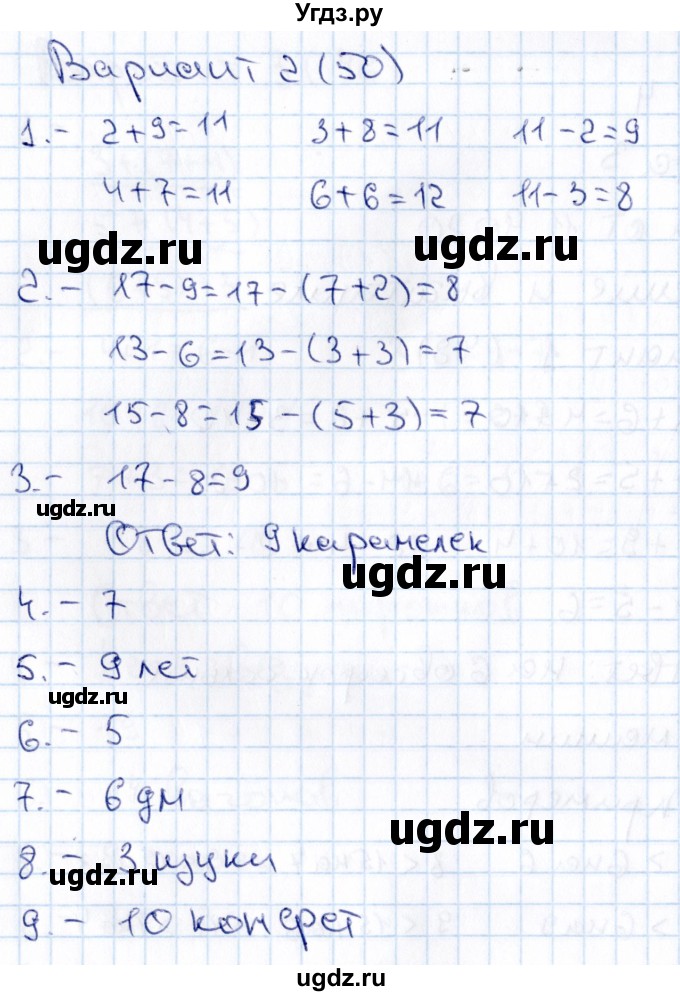 Угдз.ру
Вариант 2 (50)
1.- 2+9=11 3+8=11 11-2=9
4+7=11 6+6=12 11-3=8
ugdz.ru ugdz.ru
2.- 17-9=17-(7+2)=8
13-6=13-(3+3)=7
15-8=15-(5+3)=7
3.- 17-8=9
ugdz.ru
Ответ: 9 карамелек
ugdz.ru
4.- 7
5.- 9 лет
ugdz.ru
6.- 5
7.- 6 дм
ugdz.ru
8.- 3 щуки
ugdz.ru
9.- 10 конфрет
ugdz.ru